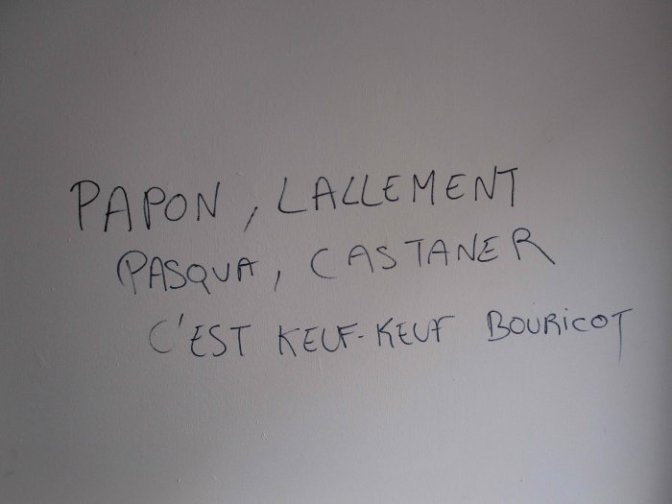 PAPON, LALLEMENT
PASQUA, CASTANER
C'EST KEUF-KEUF BOURICOT